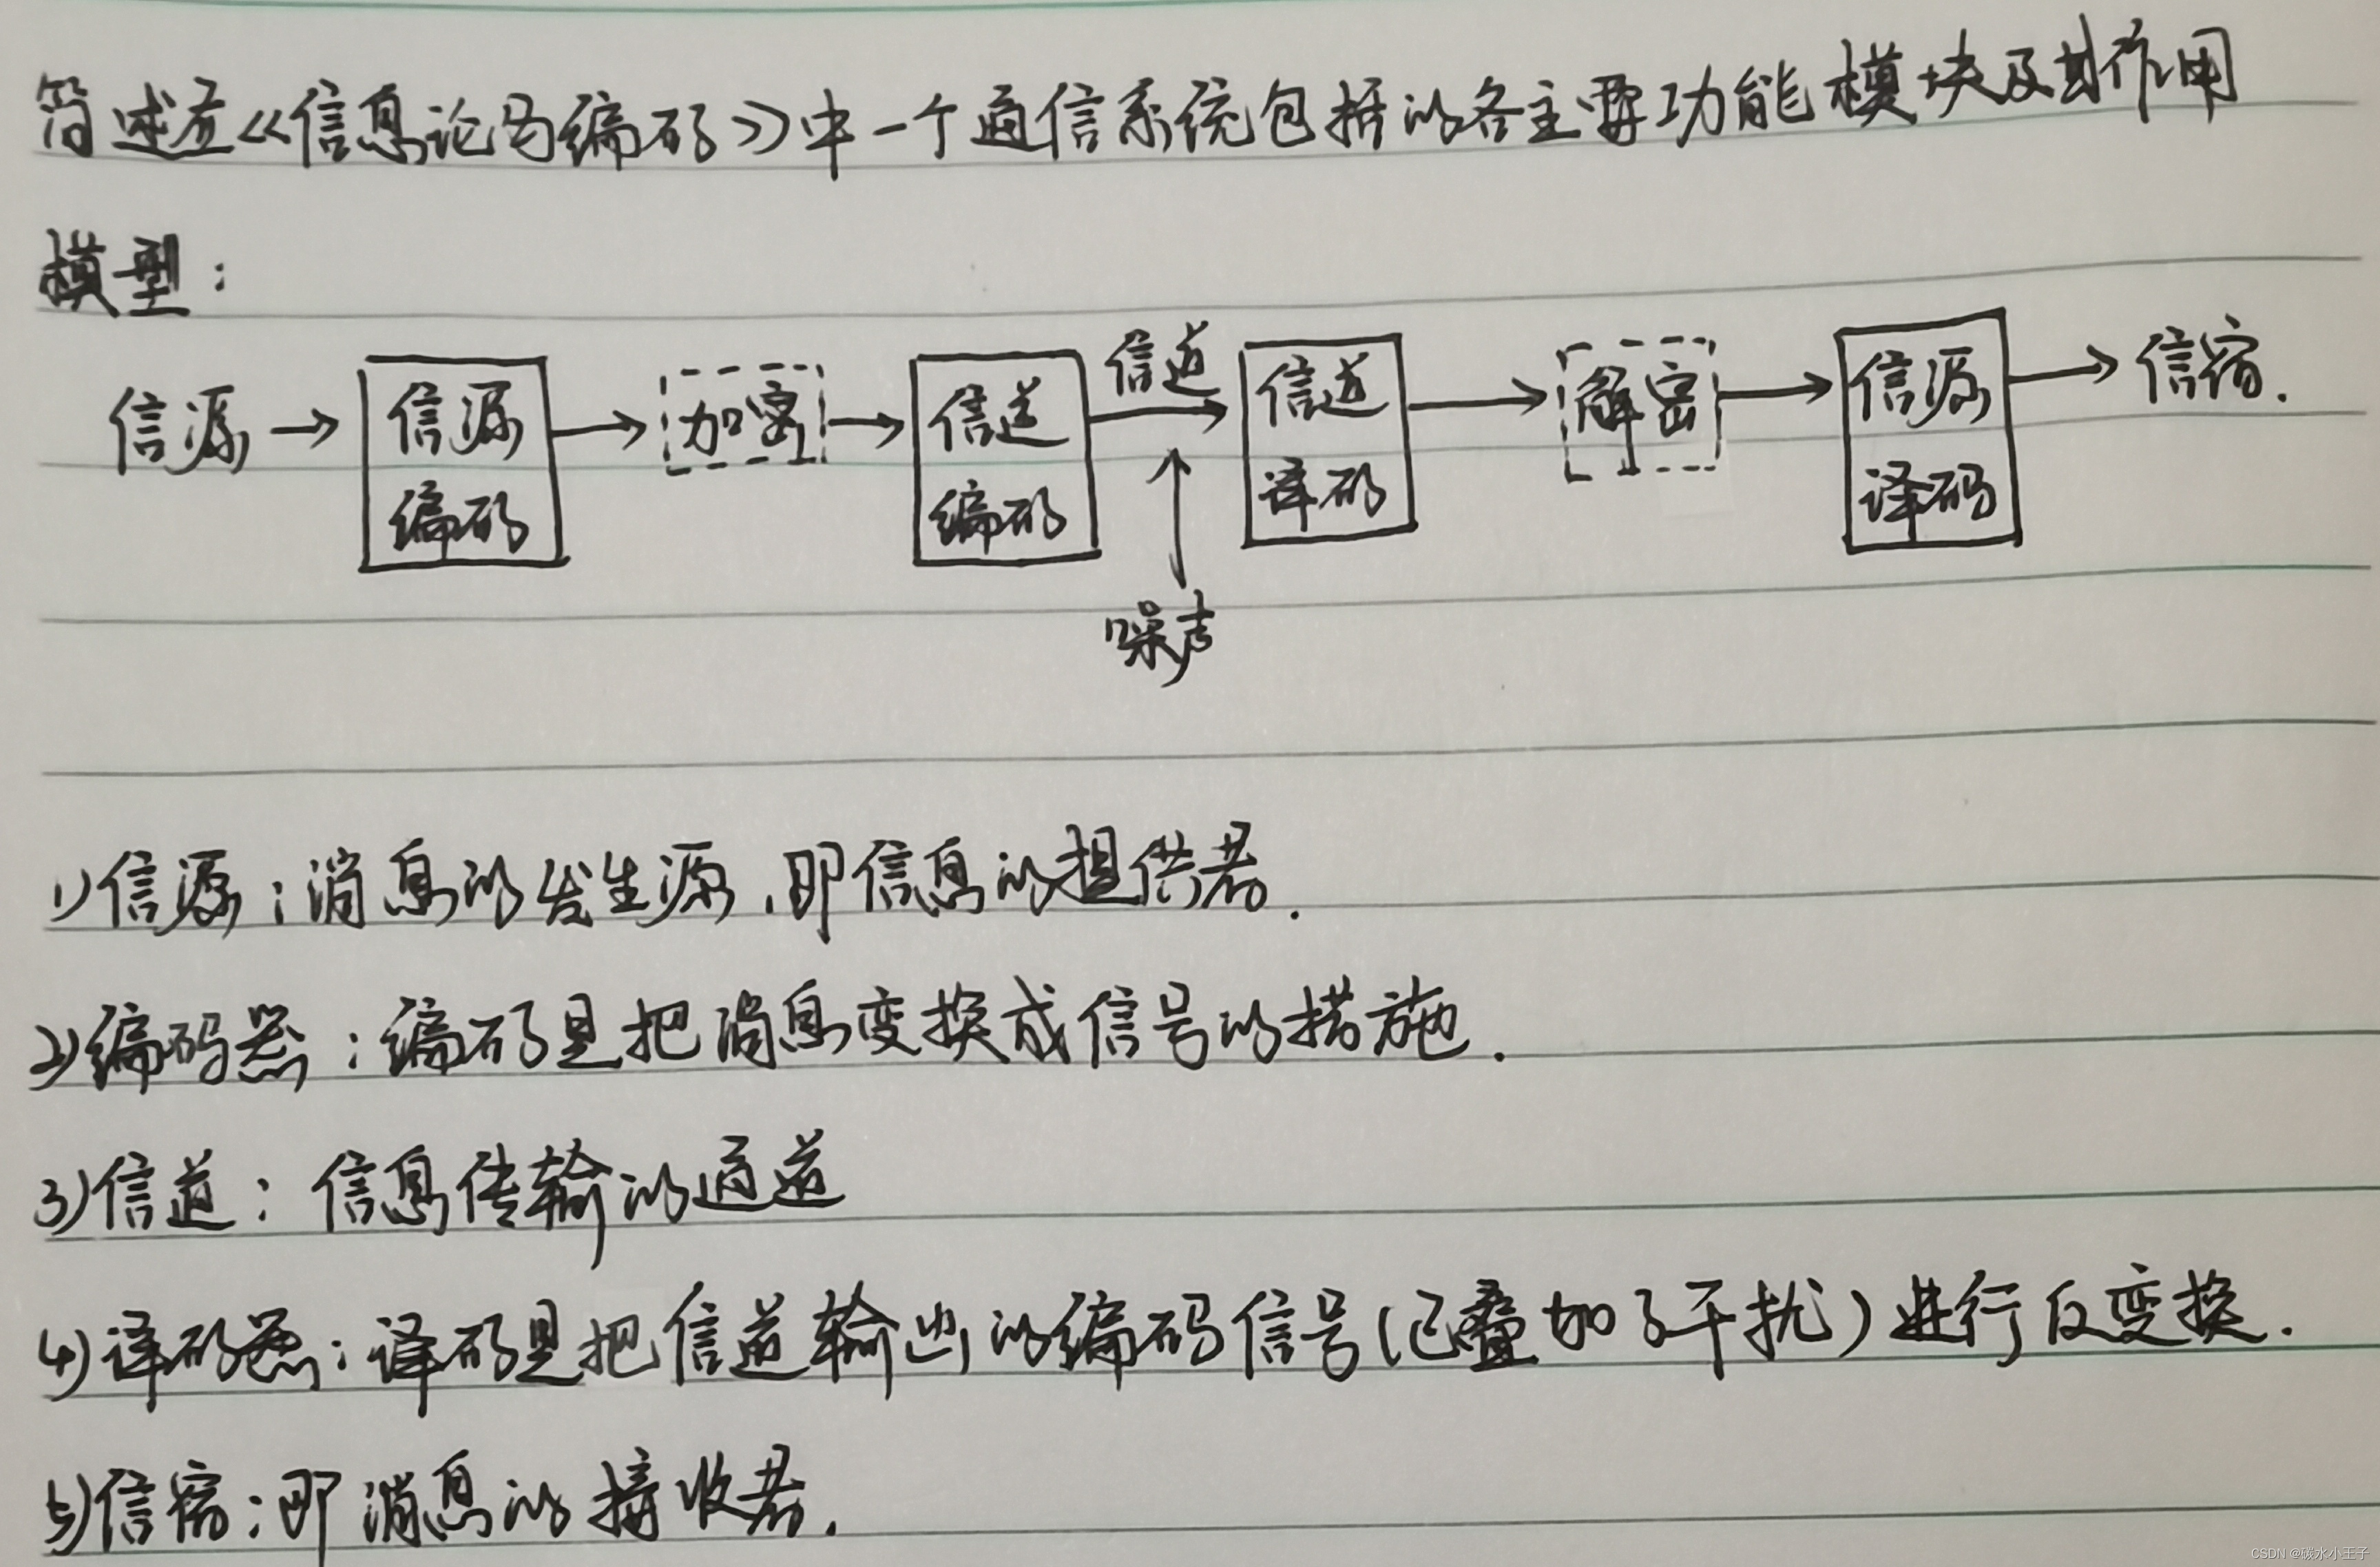 简述在《信息论与编码》中一个通信系统包括的各主要功能模块及其作用
模型：
信源 → 信源编码 → 加密 → 信道编码 → 信道 → 信道译码 → 解密 → 信源译码 → 信宿.
噪声
1)信源：消息的发生源,即信息的提供者.
2)编码器：编码是把消息变换成信号的措施.
3)信道：信息传输的通道
4)译码器：译码是把信道输出的编码信号(已叠加了干扰)进行反变换.
5)信宿：即消息的接收者.
CSDN @碳水小王子